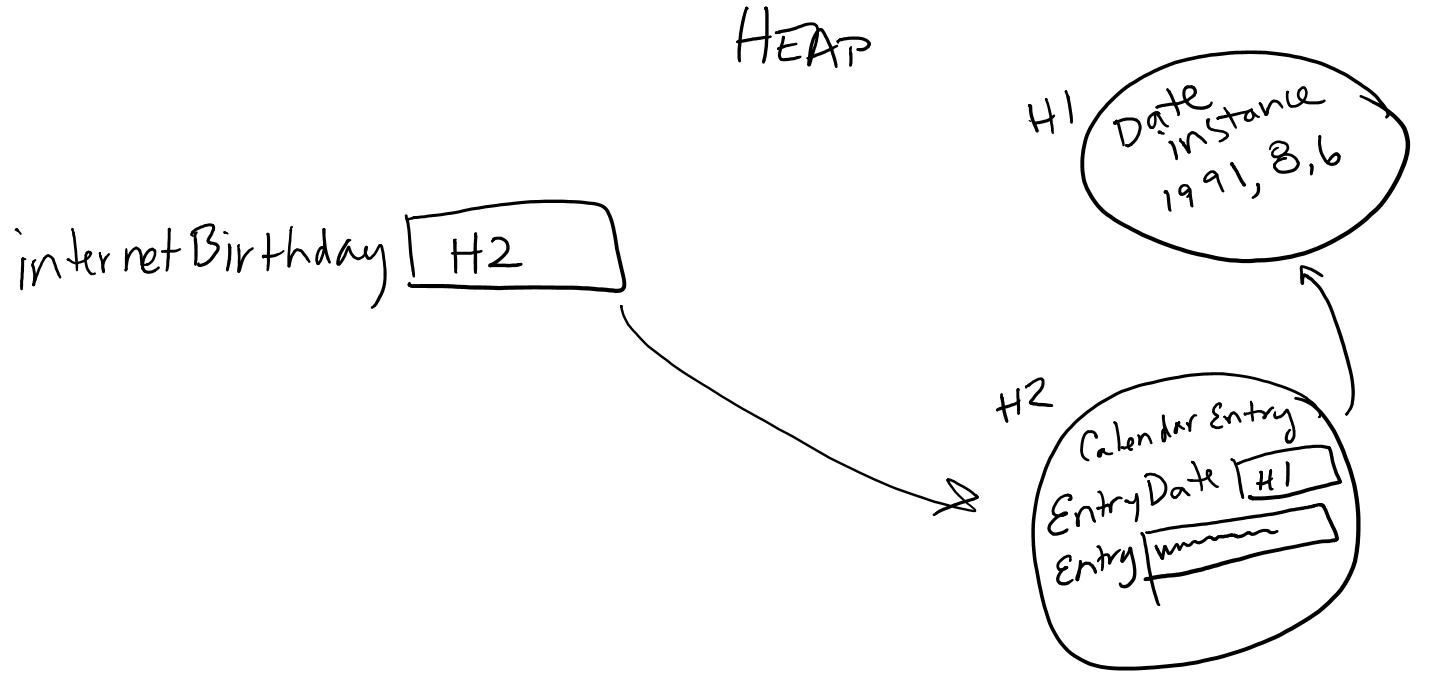 HEAP
H1
Date
instance
1991, 8,6
internetBirthday H2
H2
Calendar Entry
EntryDate H1
Entry